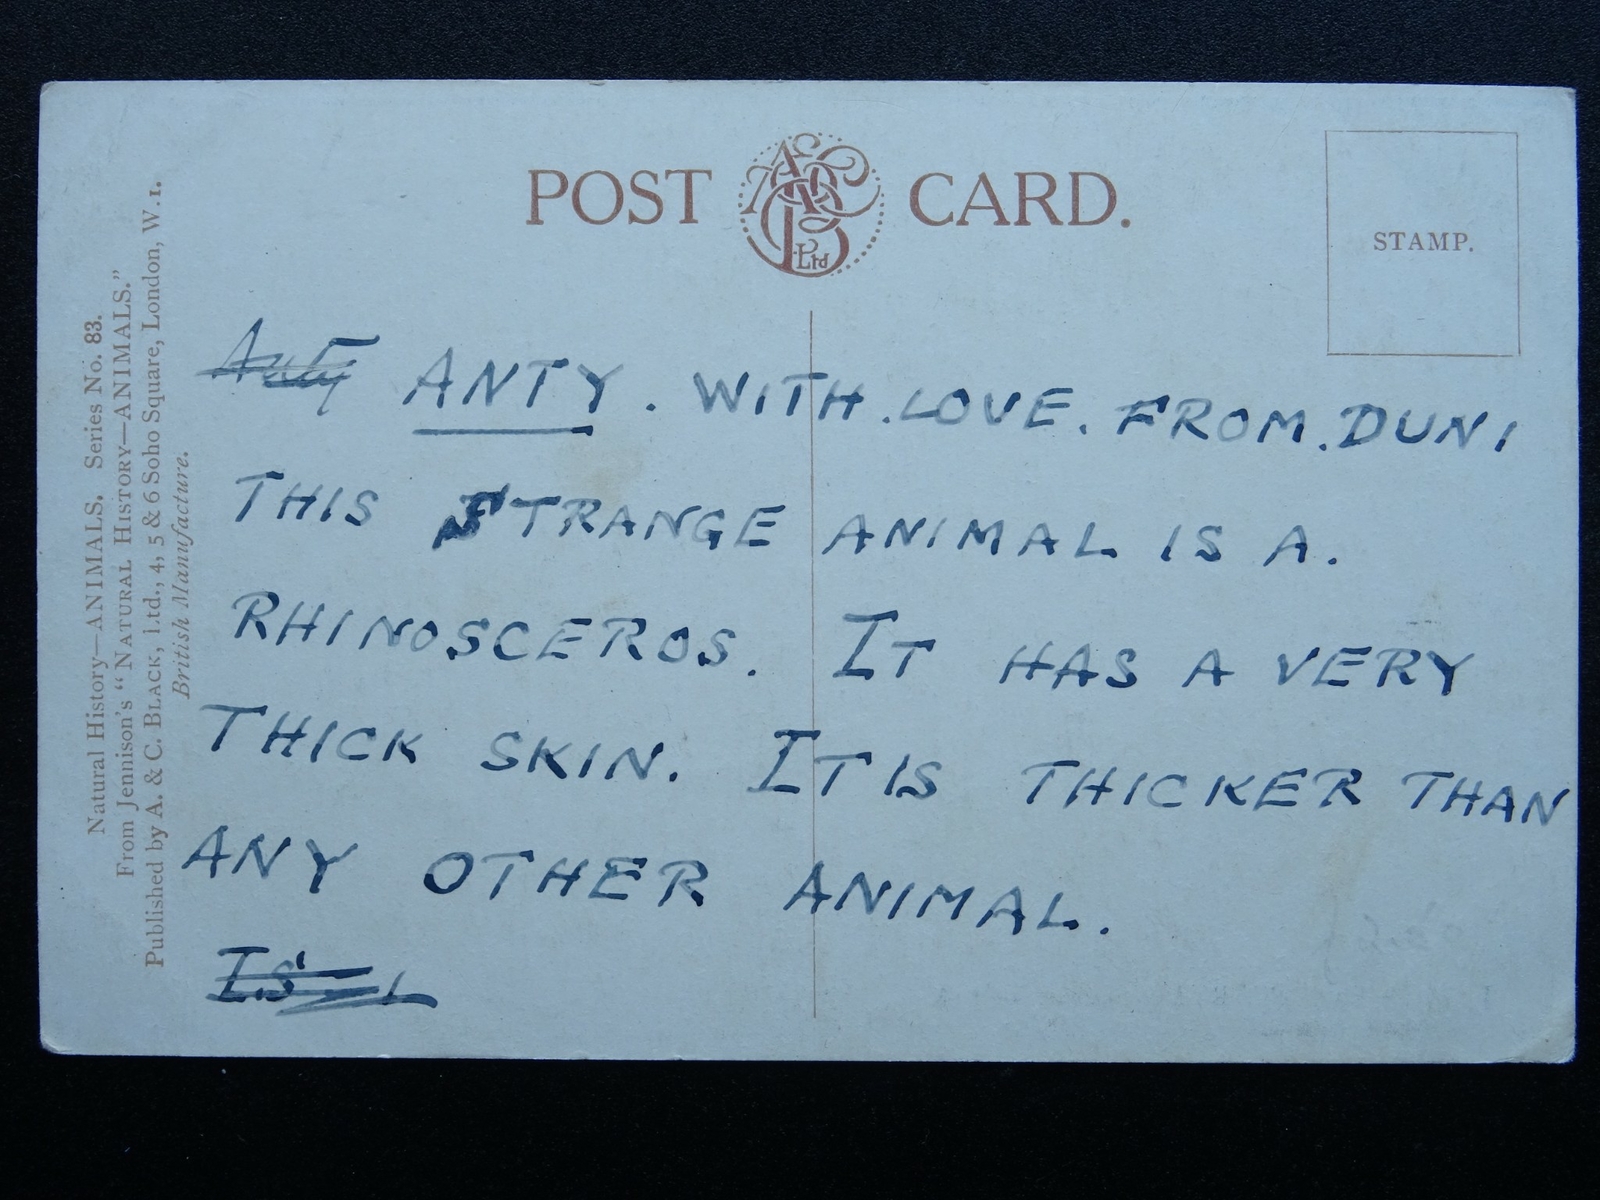 POST CARD.
Ltd
STAMP.
Natural History—ANIMALS. Series No. 83.
From Jennison's "NATURAL HISTORY—ANIMALS."
Published by A. & C. BLACK, Ltd., 4, 5 & 6 Soho Square, London, W. 1.
British Manufacture.
ANTY. WITH. LOVE. FROM. DUNI
THIS STRANGE ANIMAL IS A.
RHINOSCEROS. IT HAS A VERY
THICK SKIN. IT IS THICKER THAN
ANY OTHER ANIMAL.